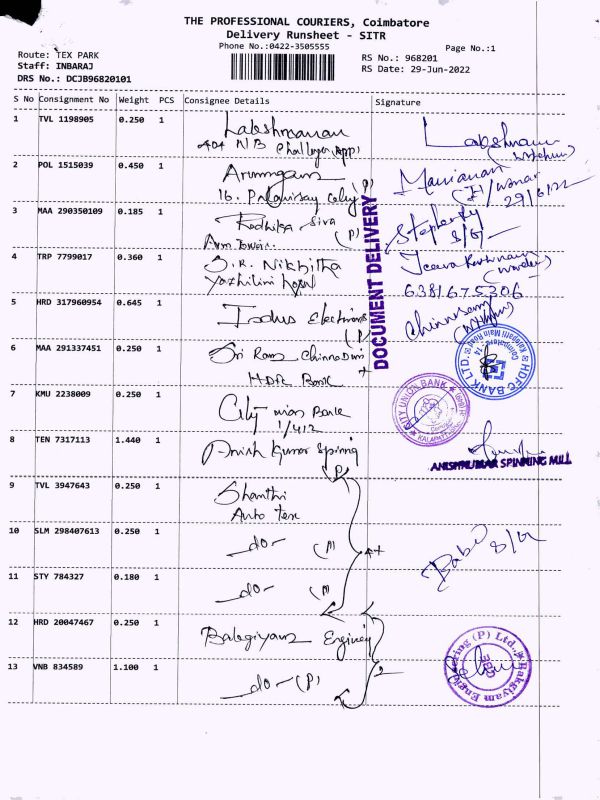 THE PROFESSIONAL COURIERS, Coimbatore
Delivery Runsheet - SITR
Phone No.:0422-3505555
Page No.:1
Route: TEX PARK
Staff: INBARAJ
DRS No.: DCJB96820101
RS No.: 968201
RS Date: 29-Jun-2022
S No Consignment No Weight PCS Consignee Details Signature
1 TVL 1198905 0.250 1 Lakshmanan
404 NB
2 POL 1515039 0.450 1
16.
29/6/22
3 MAA 290350109 0.185 1 Radhika Siva
(P)
4 TRP 7799017 0.360 1 S.R. Nikhitha
Yazhilini
6381675306
5 HRD 317960954 0.645 1 Indus Electronics
(P)
6 MAA 291337451 0.250 1 Sri Ram
HDFC Bank
7 KMU 2238009 0.250 1 City Union Bank
8 TEN 7317113 1.440 1 Anish Kumar Spinning
(P)
9 TVL 3947643 0.250 1 Shanthi
Auto Tex
10 SLM 298407613 0.250 1 -do- (P)
11 STY 784327 0.180 1 -do- (P)
12 HRD 20047467 0.250 1 Bakgiyam Enginey
13 VNB 834589 1.100 1 -do- (P)
2
DOCUMENT DELIVERY
HDFC BANK LTD.
CITY UNION BANK
ANISHKUMAR SPINNING MILL
Bakgiyam Engineering (P) Ltd.,